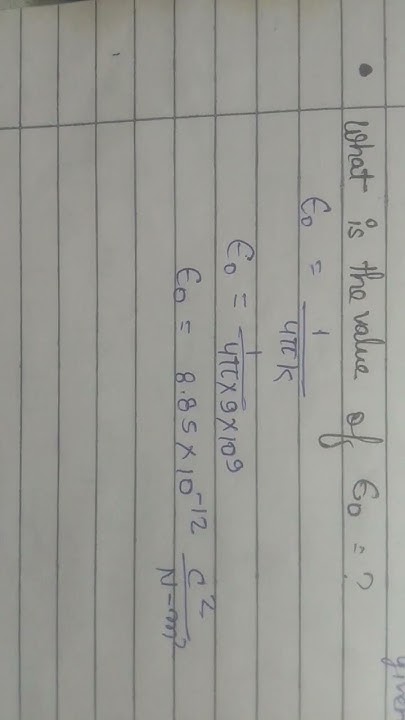 • What is the value of ϵ0 = ?
ϵ0 = 1/4πK
ϵ0 = 1/4π×9×10⁹
ϵ0 = 8.85×10⁻¹² C²/N-m²